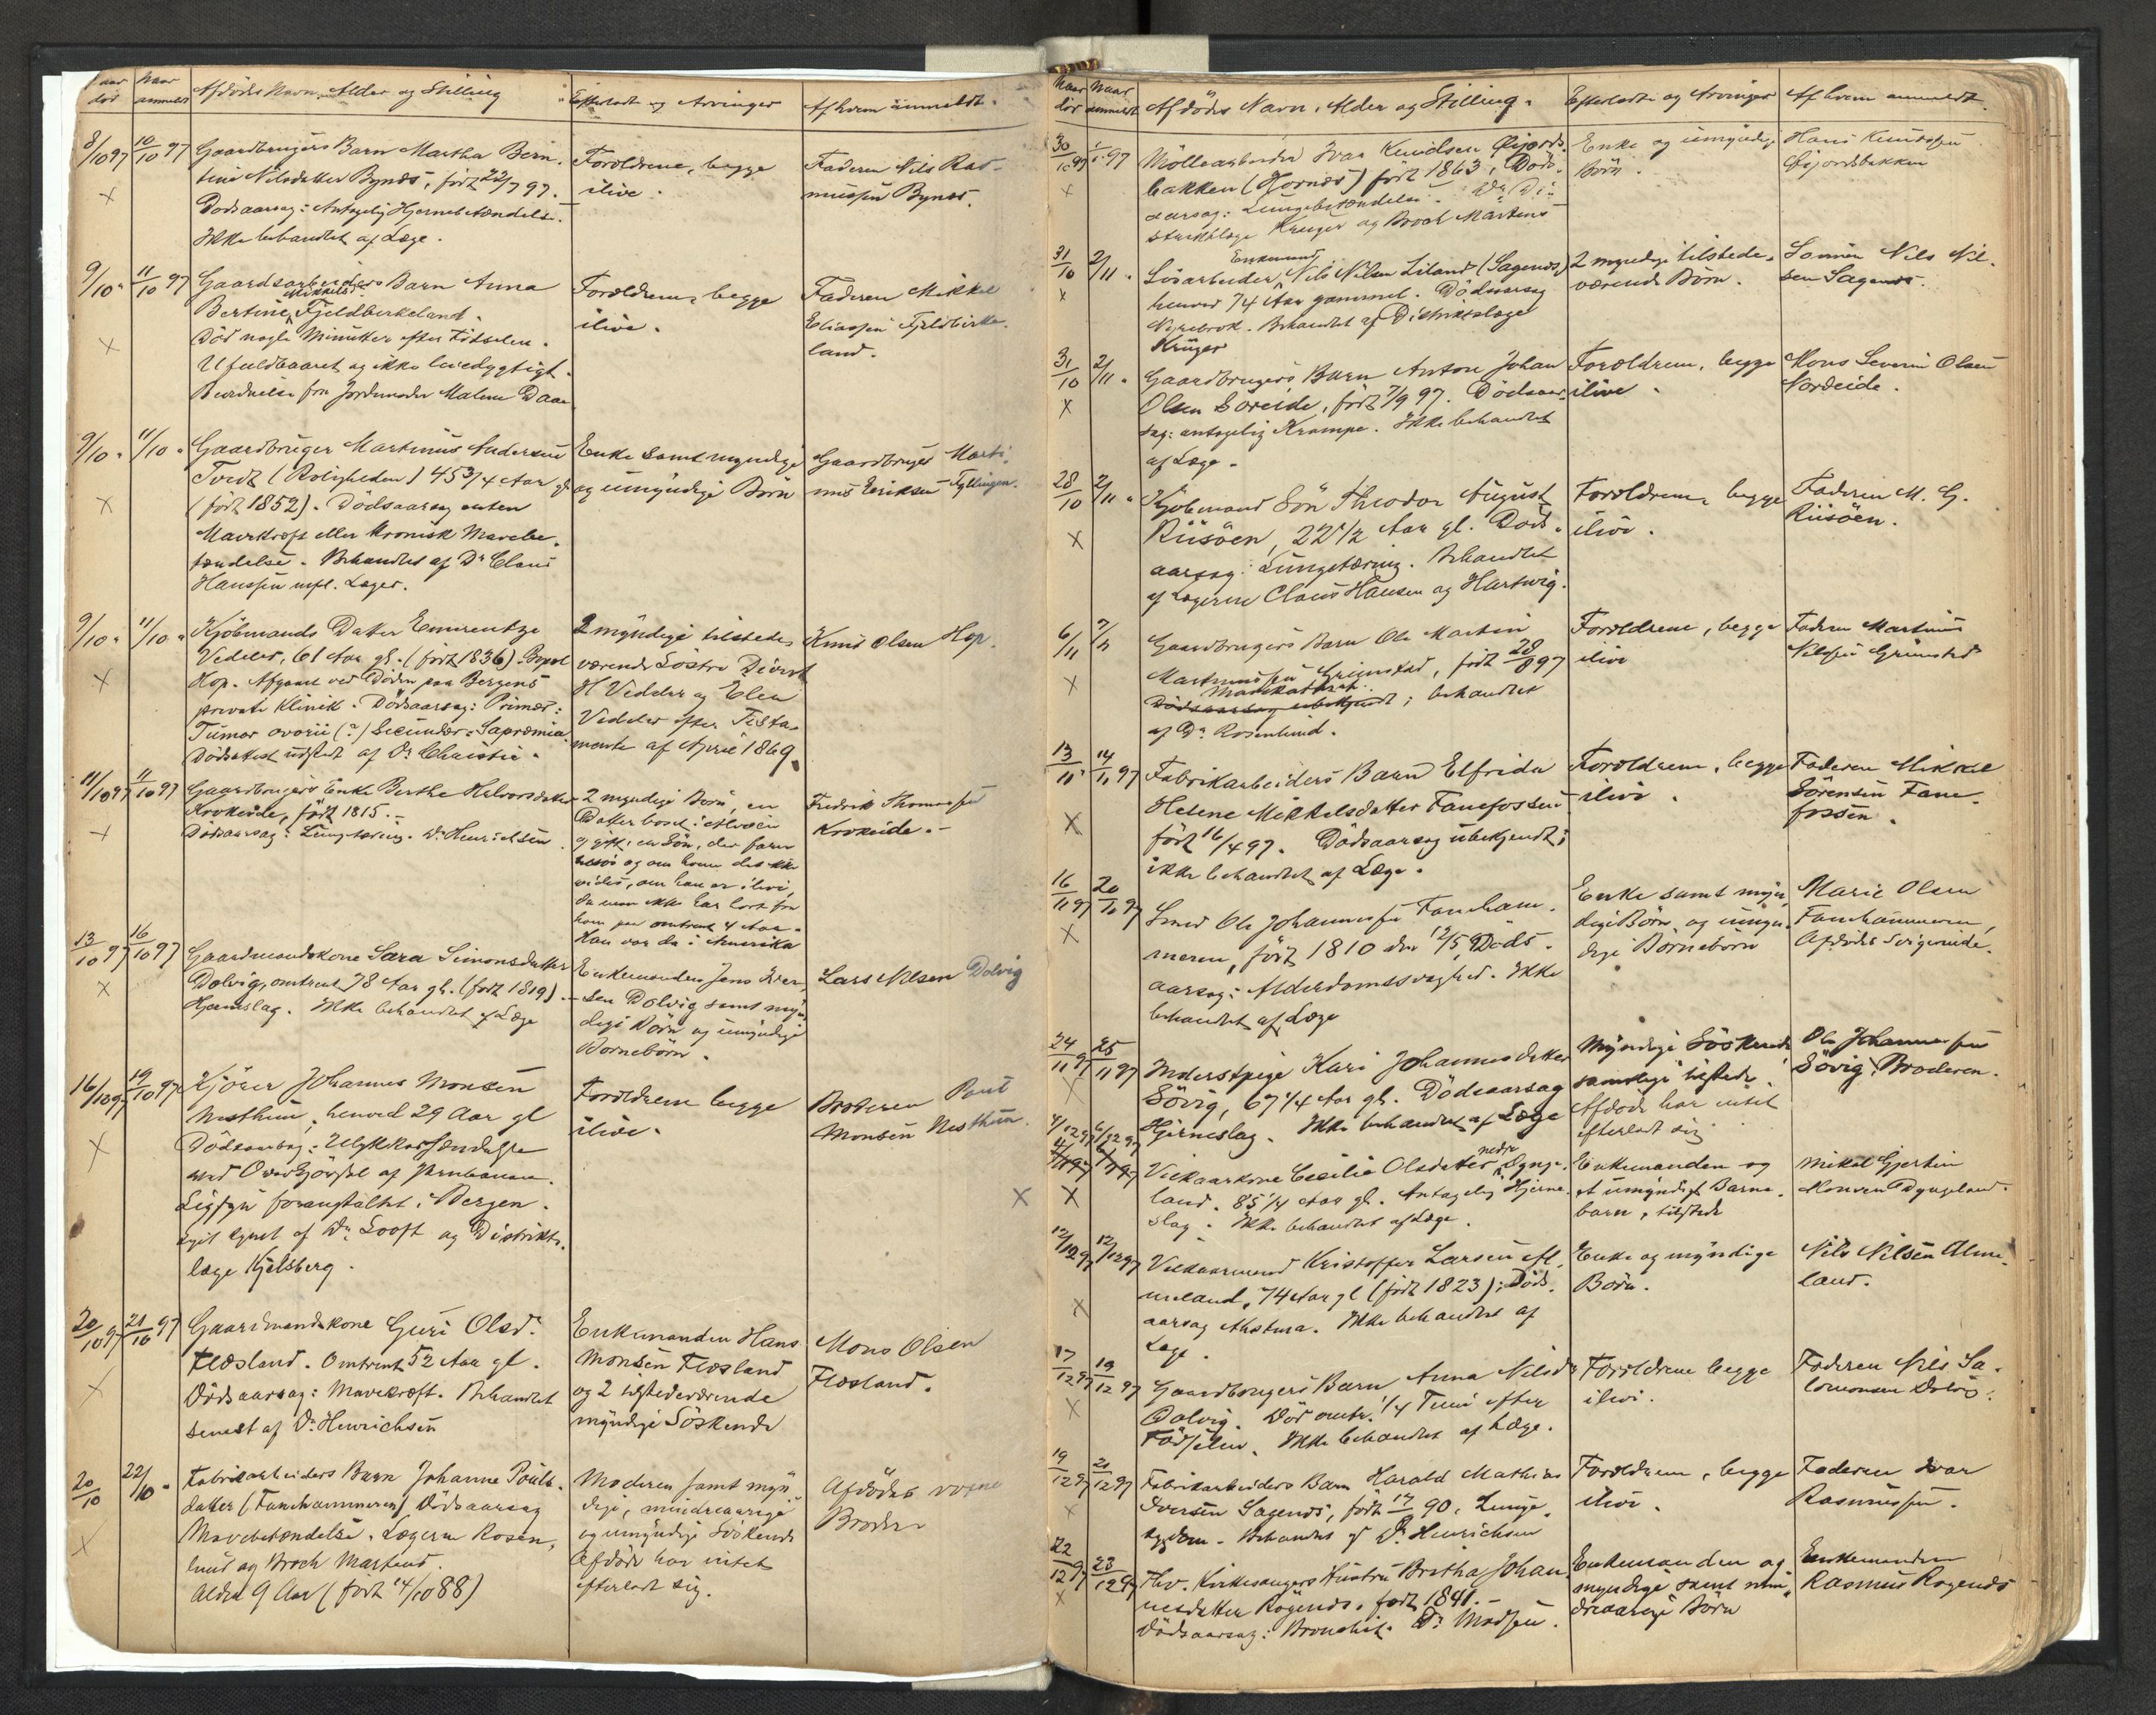 Naar død
Naar anmeldt
Afdødes Navn, Alder og Stilling
Efterladte og Arvinger
Af hvem anmeldt.
8/10 97
10/10 97
Gaardbrugers Barn Martha Bern-
tine Nilsdatter Bynes, født 22/7 97.
Dødsaarsag: Antagelig Hjernebetændelse.
Ikke behandlet af Læge.
Forældrene, begge
ilive.
Faderen Nils Ras-
mussen Bynes.
9/10 "
11/10 97
Gaardsarbeiders Barn Anna
Bertine Mikkelsd. Fjeldbirkeland.
Død nogle Minutter efter Fødselen.
Ufuldbaaret og ikke livedygtigt.
fra Jordmoder Malene Daae
Forældrene, begge
ilive.
Faderen Mikkel
Eliassen Fjeldbirke-
land.
9/10 "
11/10 "
Gaardbruger Martinus Andersen
Tvedt (Roligheden) 45 3/4 Aar gl.
(født 1852). Dødsaarsag enten
Mavekræft eller kronisk Mavebe-
tændelse. Behandlet af Dr Claus
Hanssen mfl. Læger.
Enke samt myndige
og umyndige Børn
Gaardbruger Marti-
nus Eriksen Fyllingen.
9/10 "
11/10 "
Kjøbmands Datter Emerentze
Vedeler, 61 Aar gl. (født 1836) Bopæl
Hop. Afgaaet ved Døden paa Bergens
private Klinik. Dødsaarsag: Primær:
Tumor ovarii (?) Secundær: Sapræmia
Dødsattest udstedt af Dr Christie.
2 myndige tilstede-
værende Søstre Divert
H Vedeler og Elen
Vedeler efter Testa-
mente af April 1869.
Knud Olsen Hop.
11/10 97
11/10 97
Gaardbrugers Enke Berthe Halvorsdatter
Krokeide, født 1815.
Dødsaarsag: Lungetæring. Dr Henrichsen
2 myndige Børn, en
Datter bosat i Alvøen
og gift; en Søn, der farer
tilsøs og om hvem det ikke
vides, om han er ilive,
da man ikke har hørt fra
ham paa omtrent 4 Aar.
Han var da i Amerika
Fredrik Thomassen
Krokeide.
13/10 97
16/10 97
Gaardmandskone Sara Simonsdatter
Dolvig, omtrent 78 Aar gl. (født 1819).
Hjerneslag. Ikke behandlet af Læge
Enkemanden Jens Iver-
sen Dolvig samt myn-
dige Børn og umyndige
Børnebørn.
Lars Nilsen Dolvig
16/10 97
19/10 97
Kjører Johannes Monsen
Nesthun, henved 29 Aar gl
Dødsaarsag: Ulykkeshændelse
ved Overkjørsel af Jernbanen.
Ligsyn foranstaltet i Bergen.
Liget synet af Dr Looft og Distrikts-
læge Kjelsberg.
Forældrene begge
ilive.
Broderen Poul
Monsen Nesthun.
20/10 97
21/10 97
Gaardmandskone Guri Olsd.
Flesland. Omtrent 52 Aar gl.
Dødsaarsag: Mavekræft. Behandlet
senest af Dr Henrichsen
Enkemanden Hans
Monsen Flesland
og 2 tilstedeværende
myndige Søskende
Mons Olsen
Flesland.
20/10
22/10 "
Fabrikarbeiders Barn Johanne Pouls-
datter (Fanehammeren) Dødsaarsag
Mavebetændelse. Lægerne Rosen-
lund og Broch Martens.
Alder 9 Aar (født 14/10 88)
Moderen samt myn-
dige, mindreaarige
og umyndige Søskende
Afdøde har intet
efterladt sig.
Afdødes voxne
Broder
Naar død
Naar anmeldt
Afdødes Navn, Alder og Stilling.
Efterladte og Arvinger
Af hvem anmeldt.
30/10 97
Møllearbeider Ivar Knudsen Øijords-
bakken (Hornes) født 1863. Døds-
aarsag: Lungebetændelse. Di-
striktslæge Krüger og Broch Martens
Enke og umyndige
Børn.
Hans Knudsen
Øijordsbakken
31/10
2/11 "
Løsarbeider, Enkemand Nils Nilsen Liland (Sagenes)
henved 74 Aar gammel. Dødsaarsag
Nyrebrok. Behandlet af Distriktslæge
Krüger
2 myndige tilstede-
værende Børn.
Sønnen Nils Nil-
sen Sagenes.
31/10
2/11 "
Gaardbrugers Barn Anton Johan
Olsen Søreide, født 7/9 97. Dødsaar-
sag: antagelig Krampe. Ikke behandlet
af Læge.
Forældrene, begge
ilive.
Mons Severin Olsen
Nordeide.
28/10
2/11 "
Kjøbmand Søn Theodor August
Riisøen, 22 1/2 Aar gl. Døds-
aarsag: Lungetæring. Behandlet
af Lægerne Claus Hansen og Hartwig.
Forældrene, begge
ilive.
Faderen M. G.
Riisøen.
6/11
7/11
Gaardbrugers Barn Ole Martin
Martinussen Grimstad, født 28/8 97
Mavekatarrh
Dødsaarsag ubekjendt; behandlet
af Dr Rosenlund.
Forældrene, begge
ilive
Faderen Martinus
Nilsen Grimstad
13/11 "
14/11 97
Fabrikarbeiders Barn Elfrida
Helene Mikkelsdatter Fanefossen
født 16/4 97. Dødsaarsag ubekjendt;
ikke behandlet af Læge.
Forældrene, begge
ilive.
Faderen Mikkel
Sørensen Fane-
fossen.
16/11 97
20/11 97
Smed Ole Johannessen Faneham-
meren, født 1810 den 12/5. Døds-
aarsag: Alderdomssvaghed. Ikke
behandlet af Læge
Enke samt myn-
dige Børn og umyn-
dige Børnebørn
Marie Olsen
Fanehammeren,
Afdødes Svigerinde.
24/11 97
25/11 97
Inderstpige Kari Johannesdatter
Søvig, 67 1/4 Aar gl. Dødsaarsag
Hjerneslag. Ikke behandlet af Læge
Myndige Søskende
samtlige tilstede.
Afdøde har intet
efterladt sig
Ole Johannessen
Søvig, Broderen.
4/12 97
6/12 97
Vilkaarskone Cecilie Olsdatter nedre Dynge-
land. 85 1/4 Aar gl. Antagelig Hjerne-
slag. Ikke behandlet af Læge.
Enkemanden og
et umyndigt Barne-
barn, tilstede
Mikal Gjertin
Monsen Dyngeland.
12/12 97
12/12 97
Vilkaarmand Kristoffer Larsen Al-
meland, 74 Aar gl (født 1823); Døds-
aarsag Asthma. Ikke behandlet af
Læge.
Enke og myndige
Børn.
Nils Nilsen Alme-
land.
17/12 97
19/12 97
Gaardbrugers Barn Anna Nilsdr
Dolvig. Død omtr. 1/4 Time efter
Fødselen. Ikke behandlet af Læge.
Forældrene begge
ilive.
Faderen Nils Sa-
lomonsen Dolvig.
19/12 97
21/12 97
Fabrikarbeiders Barn Harald Mathias
Iversen Sagenes, født 90. Lunge-
sygdom. Behandlet af Dr Henrichsen
Forældrene, begge
ilive.
Faderen Ivar
Rasmussen.
22/12 97
23/12 97
Fhv. Kirkesangers Hustru Brithe Johan-
nesdatter Røgenes, født 1841.
Dødsaarsag: Bronchit. Dr Madsen.
Enkemanden og
myndige samt min-
dreaarige Børn
Enkemanden
Rasmus Røgenes